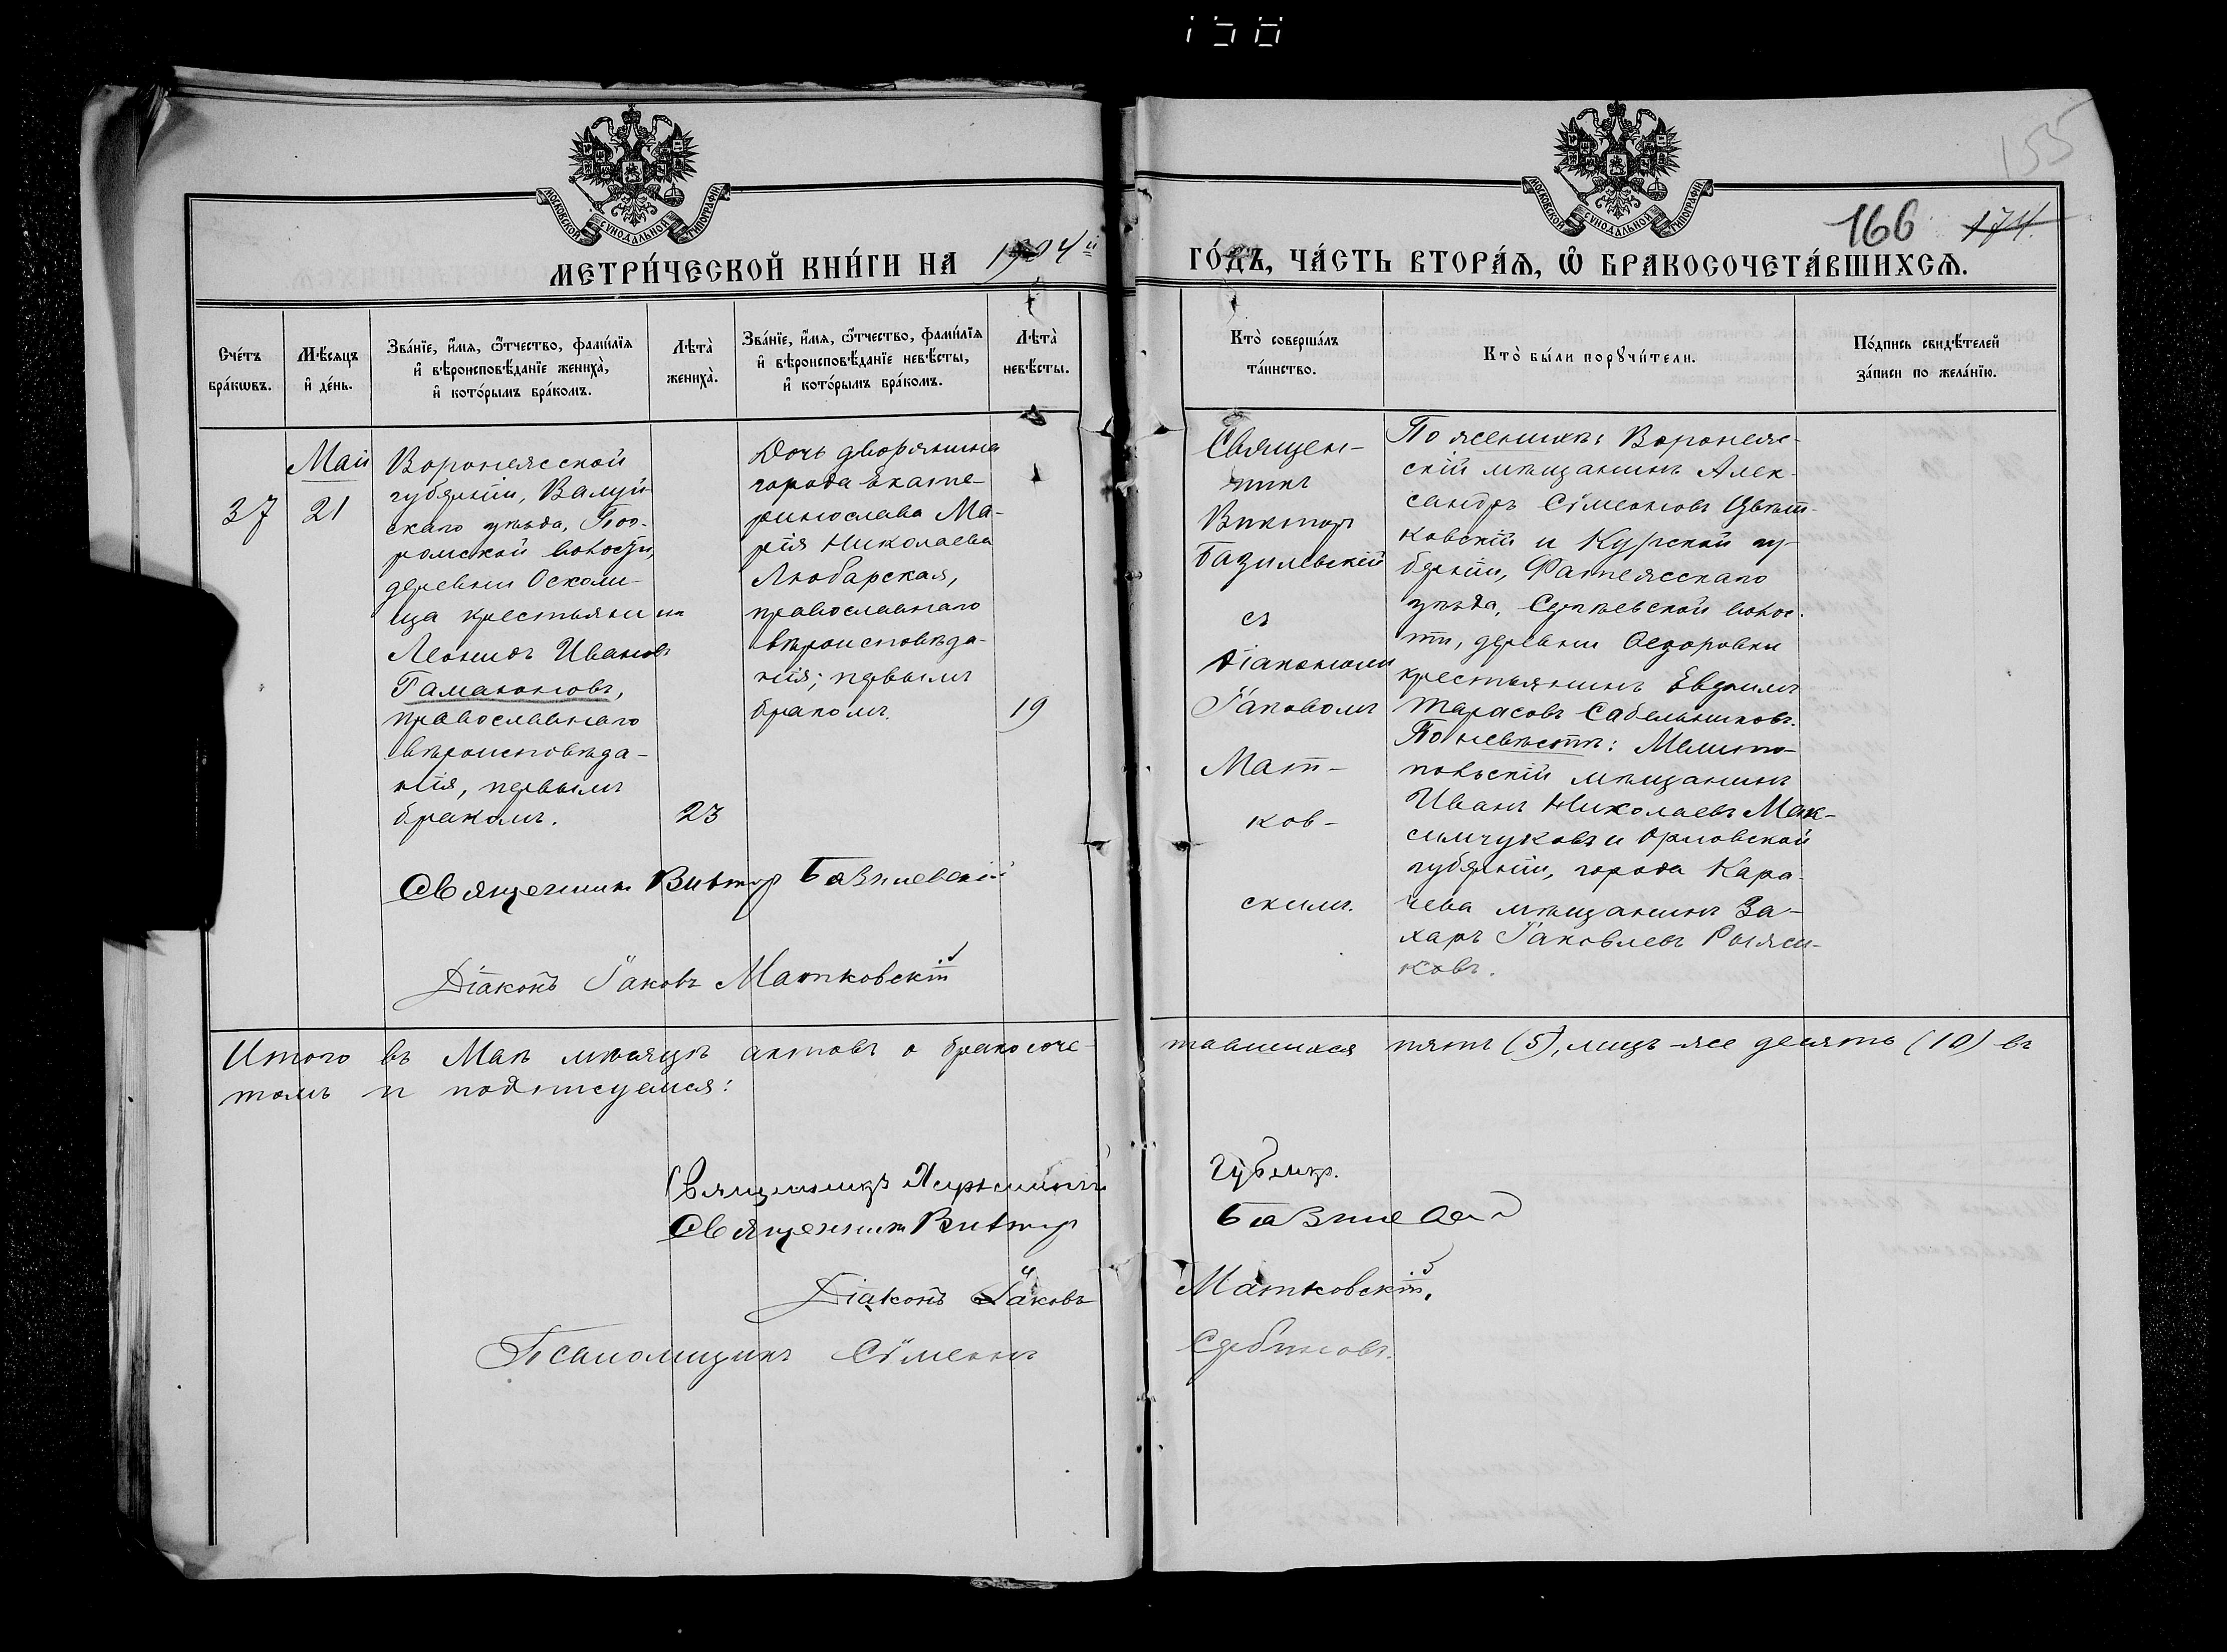 155
166 174
МОСКОВСКОЙ СѴНОДАЛЬНОЙ ТИПОГРАФІИ
МОСКОВСКОЙ СѴНОДАЛЬНОЙ ТИПОГРАФІИ
МЕТРИ́ЧЕСКОЙ КНИ́ГИ НА 1904й
ГО́ДЪ, ЧА́СТЬ ВТОРА́Ѧ, Ѽ БРАКОСОЧЕТА́ВШИХСѦ.
Сче́тъ бра́кѡвъ.
Мѣ́сяцъ и҆ де́нь.
Зва́нїе, и҆́мѧ, ѻ҆́тчество, фами́лїѧ
и҆ вѣроисповѣ́данїе жениха̀,
и҆ кото́рымъ бра́комъ.
Лѣта̀ жениха̀.
Зва́нїе, и҆́мѧ, ѻ҆́тчество, фами́лїѧ
и҆ вѣроисповѣ́данїе невѣ́сты,
и҆ кото́рымъ бра́комъ.
Лѣта̀ невѣ́сты.
Кто̀ соверша́лъ та́инство.
Кто̀ бы́ли порꙋчи́тели.
По́дпись свидѣ́телей
за́писи по жела́нїю.
37
Май
21
Воронежской
губерніи, Валуй-
скаго уѣзда,
волости,
деревни Осколи-
ща крестьянинъ
Леонидъ Ивановъ
Гамаюновъ,
православнаго
вѣроисповѣда-
нія, первымъ
бракомъ.
23
Дочь дворянина
города Екате-
ринослава Ма-
рія Николаева
Любарская,
православнаго
вѣроисповѣда-
нія; первымъ
бракомъ.
19
Священ-
никъ
Викторъ
Базилевскій
съ
діакономъ
Іаковомъ
Мат-
ков-
скимъ.
По женихѣ: Воронеж-
скій мѣщанинъ Алек-
сандръ Сѵмеоновъ Цвѣт-
ковскій и Курской гу-
берніи, Фатежскаго
уѣзда, Сергѣевской волос-
ти, деревни Ѳедоровки
крестьянинъ Евдоимъ
Тарасовъ Сабельниковъ.
По невѣстѣ: Мелито-
польскій мѣщанинъ
Иванъ Николаевъ Мак-
симчуковъ и Орловской
губерніи, города Кара-
чева мѣщанинъ За-
харъ Іаковлевъ Рыжи-
ковъ.
Священникъ Викторъ Базилевскій
Діаконъ Іаковъ Матковскій
Итого въ Маѣ мѣсяцѣ актовъ о бракосоче-
тавшихся пять (5), лицъ-же десять (10) въ
томъ и подписуемся:
Священникъ
Священникъ Викторъ Базилевскій
Діаконъ Іаковъ Матковскій.
Псаломщикъ Сѵмеонъ Сербиновъ.